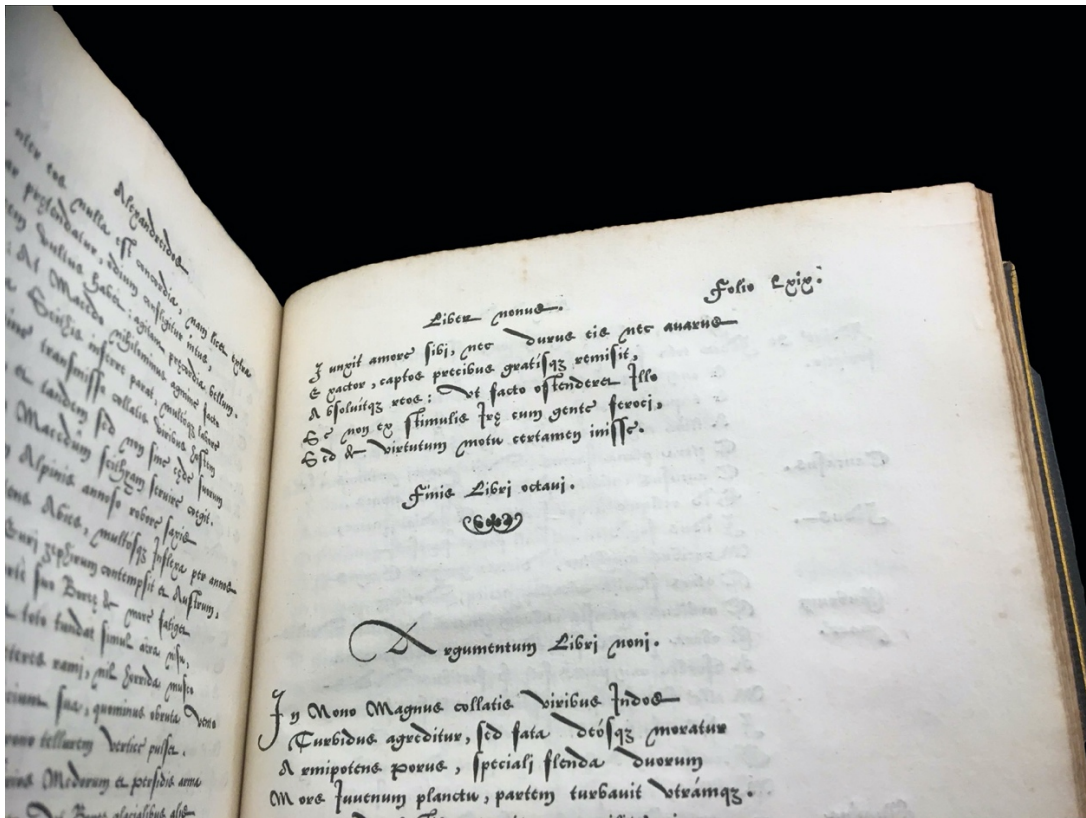 Alexandreidos
inter eos nulla est concordia, nam licet extra
pretendatur, odium confligitur intus,
vultus habet: agitant precordia bellum.
At Macedo nihilominus agmine facto
Scithis inferre parat, multosqꝫ labore
transmisso collatis viribus hostem
et tandem sed non sine cęde suorum
Macedum scithyam servire coegit.
Alpinis annoso robore saxis
Abies, multosqꝫ Inflexa per annos
Euri zephirum contempsit et Austrum,
suo Boreę & more fatiget
toto tundat simul aera nisu,
rami, nil horrida musco
sua, queminus obruta Vento
tellurem vertice pulset.
Medorum et persidis arma
glacialibus alis
Liber nonus. Folio Lxix.
Iunxit amore sibi, nec durus eis nec avarus
Exactor, captos precibus gratisqꝫ remisit,
Absoluitqꝫ reos: Vt facto ostenderet Illo
Se non ex stimulis Irę cum gente feroci,
Sed & virtutum motu certamen inisse.
Finis Libri octaui.
Argumentum Libri noni.
In Nono Magnus collatis viribus Indos
Turbidus agreditur, sed fata deósqꝫ moratur
Armipotens porus, speciali flenda duorum
More Iuuenum planctu, partem turbauit vtrámqꝫ.